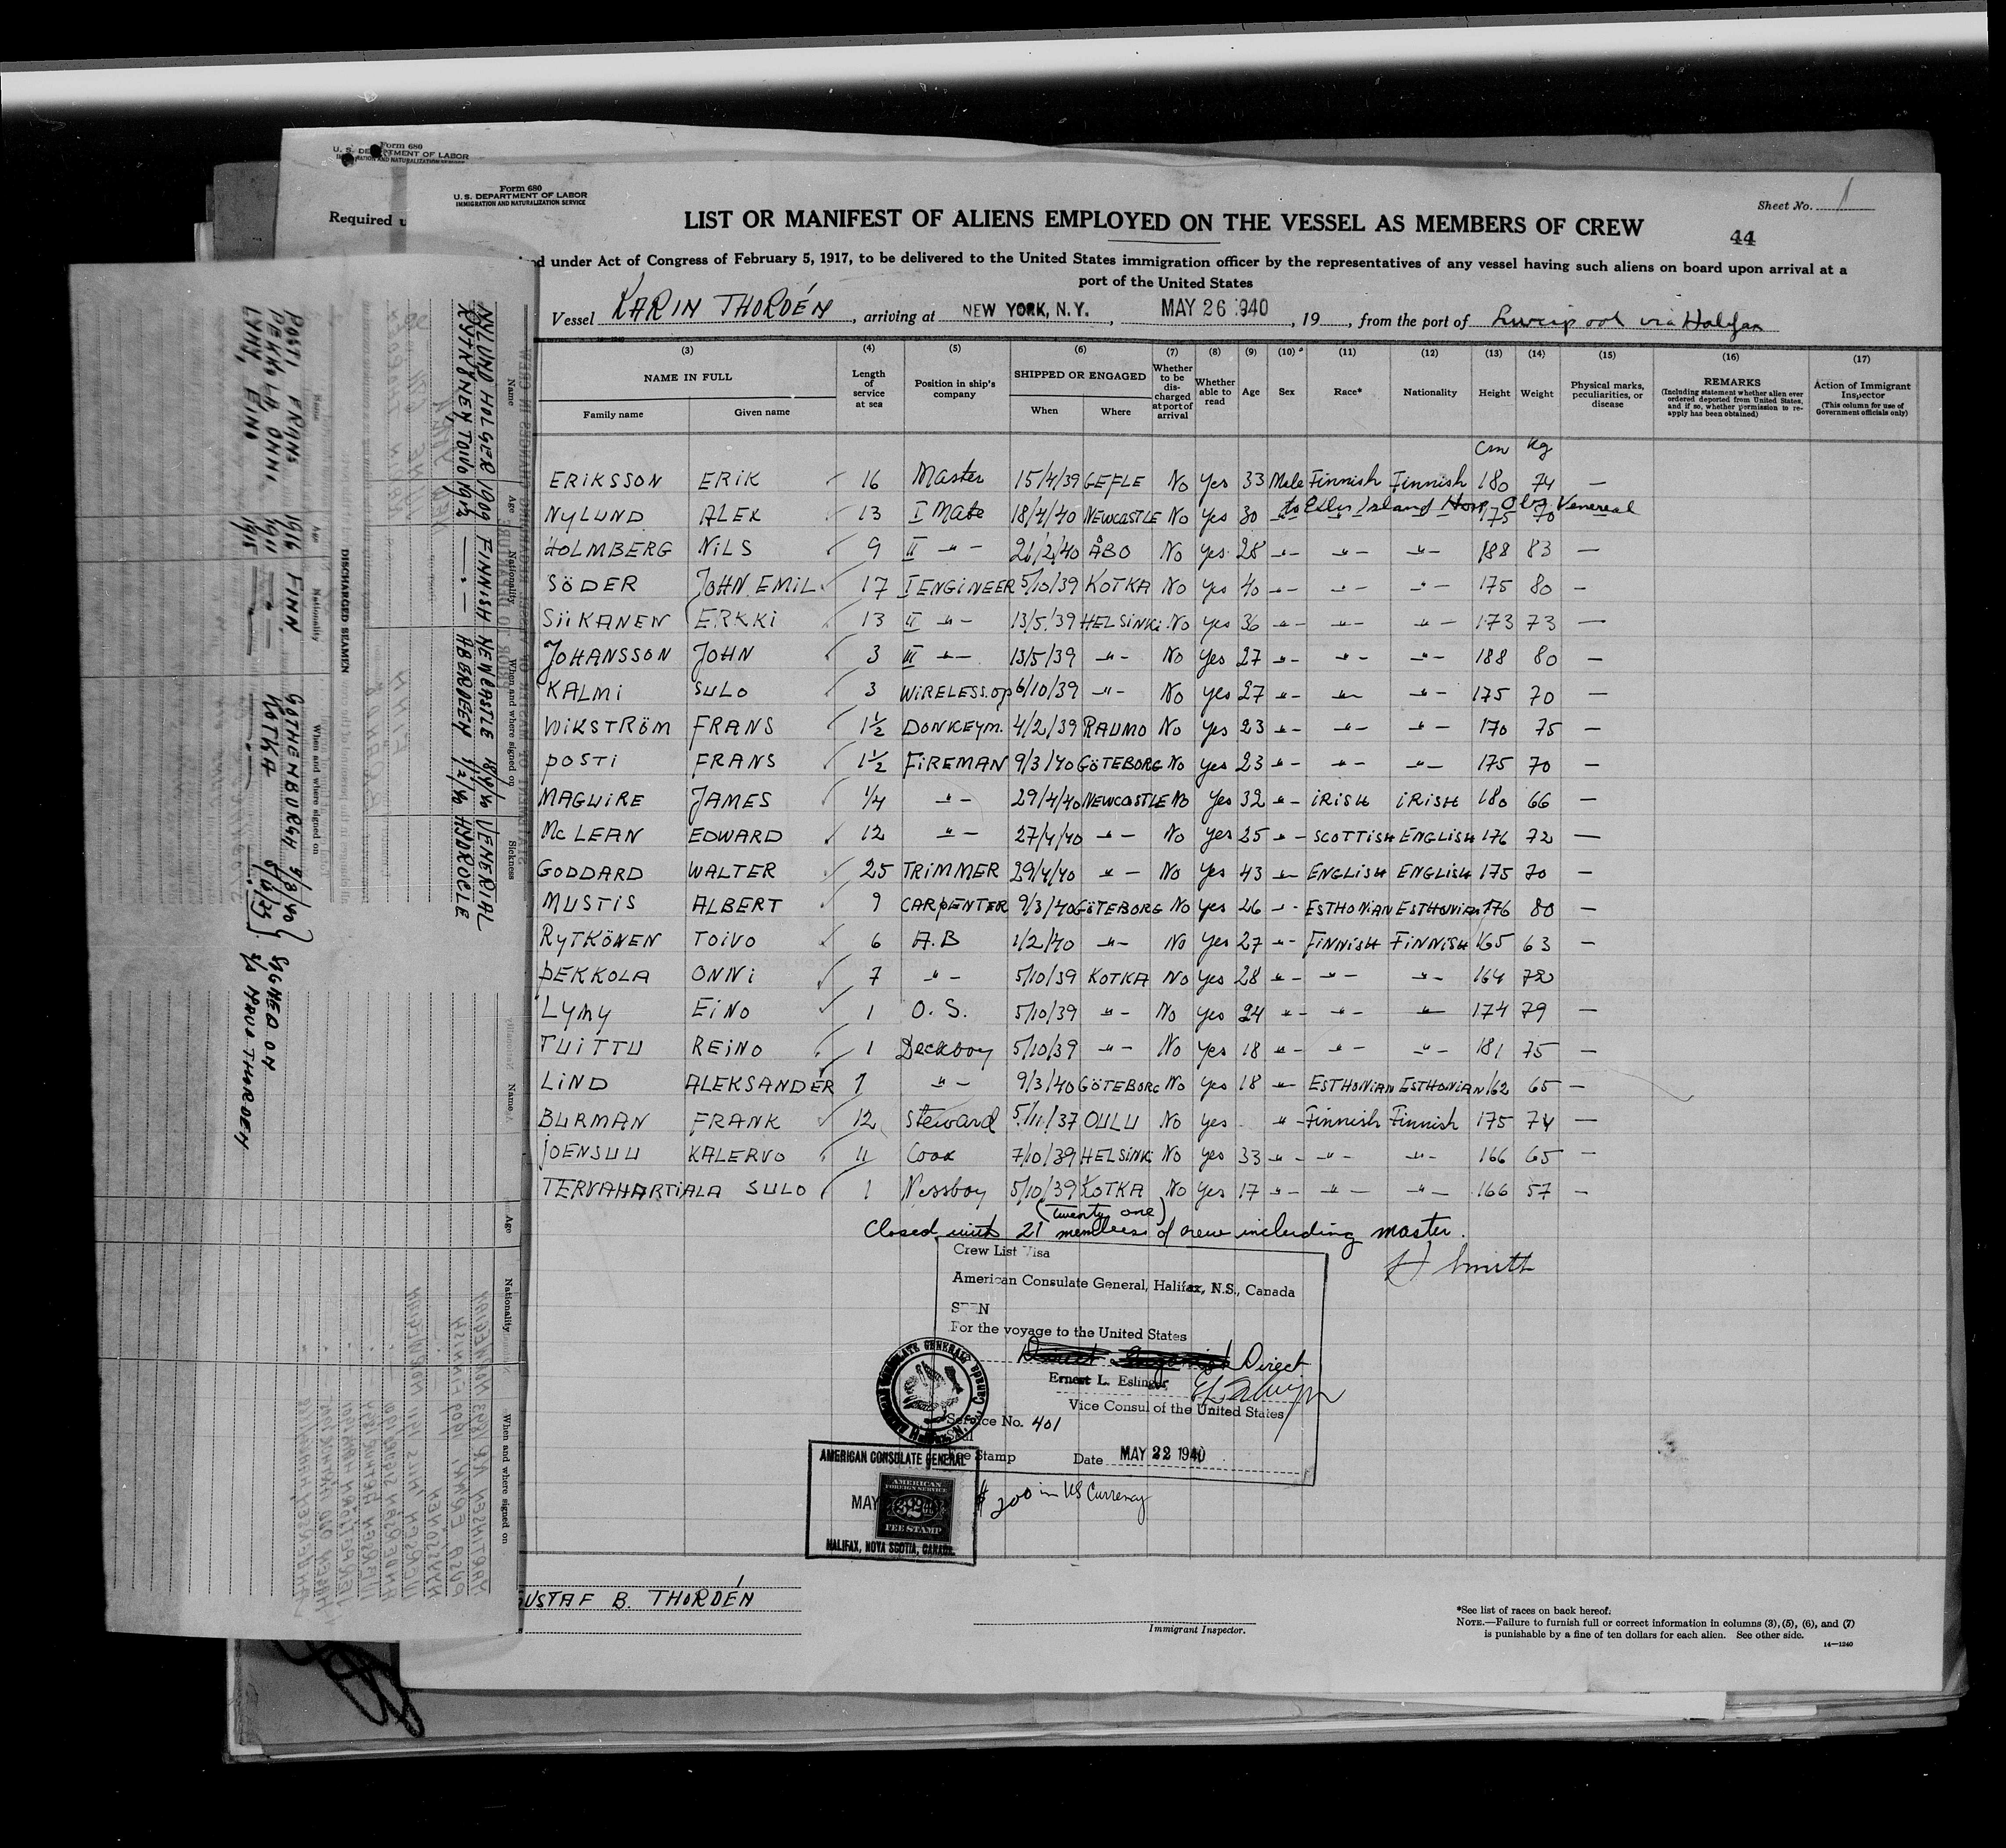 Form 680
U. S. DEPARTMENT OF LABOR
IMMIGRATION AND NATURALIZATION SERVICE
Required u
Form 680
U. S. DEPARTMENT OF LABOR
IMMIGRATION AND NATURALIZATION SERVICE
Sheet No. 1
LIST OR MANIFEST OF ALIENS EMPLOYED ON THE VESSEL AS MEMBERS OF CREW
44
ed under Act of Congress of February 5, 1917, to be delivered to the United States immigration officer by the representatives of any vessel having such aliens on board upon arrival at a
port of the United States
Vessel KARIN THORDÉN, arriving at NEW YORK, N.Y., MAY 26 1940, 19, from the port of Liverpool via Halifax
(3) (4) (5) (6) (7) (8) (9) (10) (11) (12) (13) (14) (15) (16) (17)
NAME IN FULL Family name Given name
Length of service at sea
Position in ship's company
SHIPPED OR ENGAGED When Where
Whether to be discharged at port of arrival
Whether able to read
Age Sex Race* Nationality Height Weight
Physical marks, peculiarities, or disease
REMARKS (Including statement whether alien ever ordered deported from United States, and if so, whether permission to reapply has been obtained)
Action of Immigrant Inspector (This column for use of Government officials only)
cm kg
ERIKSSON ERIK 16 Master 15/4/39 GEFLE No Yes 33 Male Finnish Finnish 180 74 —
NYLUND ALEX 13 I Mate 18/4/40 NEWCASTLE No Yes 30 to Ellis Island Hosp Obs Venereal 175 70
HOLMBERG NILS 9 II -"- 21/2/40 ÅBO No yes 28 -"- -"- -"- 188 83 —
SÖDER JOHN EMIL 17 I ENGINEER 5/10/39 KOTKA No Yes 40 -"- -"- -"- 175 80 —
SIIKANEN ERKKI 13 II -"- 13/5/39 HELSINKI No yes 36 -"- -"- -"- 173 73 —
JOHANSSON JOHN 3 III -"- 13/5/39 -"- No Yes 27 -"- -"- -"- 188 80 —
KALMI SULO 3 WIRELESS.OP 6/10/39 -"- No yes 27 -"- -"- -"- 175 70 —
WIKSTRÖM FRANS 1½ DONKEYM. 4/2/39 RAUMO No Yes 23 -"- -"- -"- 170 75 —
POSTI FRANS 1½ FIREMAN 9/3/40 GÖTEBORG No yes 23 -"- -"- -"- 175 70 —
MAGUIRE JAMES ¼ -"- 29/4/40 NEWCASTLE No Yes 32 -"- IRISH IRISH 180 66 —
McLEAN EDWARD 12 -"- 27/4/40 -"- No Yes 25 -"- SCOTTISH ENGLISH 176 72 —
GODDARD WALTER 25 TRIMMER 29/4/40 -"- No Yes 43 -"- ENGLISH ENGLISH 175 70 —
MUSTIS ALBERT 9 CARPENTER 9/3/40 GÖTEBORG No Yes 26 -"- ESTHONIAN ESTHONIAN 176 80 —
RYTKÖNEN TOIVO 6 A.B 1/2/40 -"- No Yes 27 -"- FINNISH FINNISH 165 63 —
PEKKOLA ONNI 7 -"- 5/10/39 KOTKA No Yes 28 -"- -"- -"- 164 72
LYMY EINO 1 O. S. 5/10/39 -"- No Yes 24 -"- -"- -"- 174 79 —
TUITTU REINO 1 Deckboy 5/10/39 -"- No Yes 18 -"- -"- -"- 181 75 —
LIND ALEKSANDER 1 -"- 9/3/40 GÖTEBORG No Yes 18 -"- ESTHONIAN ESTHONIAN 162 65 —
BURMAN FRANK 12 Steward 5/11/37 OULU No yes -"- Finnish Finnish 175 74 —
JOENSUU KALERVO 11 Cook 7/10/39 HELSINKI No yes 33 -"- -"- -"- 166 65 —
TERVAHARTIALA SULO 1 Messboy 5/10/39 KOTKA No Yes 17 -"- -"- -"- 166 57 —
(twenty one)
Closed with 21 members of crew including master.
H Smith
Crew List Visa
American Consulate General, Halifax, N.S., Canada
SEEN
For the voyage to the United States
Direct
Ernest L. Eslinger
Vice Consul of the United States
Service No. 401
Fee Stamp Date MAY 22 1940
AMERICAN CONSULATE GENERAL
MAY
AMERICAN FOREIGN SERVICE
$2
FEE STAMP
HALIFAX, NOVA SCOTIA, CANADA.
$ 2.00 in US Currency
USTAF B. THORDÉN
Immigrant Inspector.
*See list of races on back hereof.
NOTE.—Failure to furnish full or correct information in columns (3), (5), (6), and (7)
is punishable by a fine of ten dollars for each alien. See other side.
14—1240
Name Age Nationality When and where signed on Sickness
NYLUND HOLGER 1909 FINNISH NEWCASTLE 18/4/40 VENERIAL
RYTKÖNEN TOIVO 1912 —"— ABERDEEN 1/2/40 HYDROCLE
DISCHARGED SEAMEN
Name Age Nationality When and where signed on
POSTI FRANS 1916 FINN GOTHENBURGH 9/3/40
PEKKOLA ONNI 1911 —"— KOTKA 5/10/39
LYMY, EINO 1915 —"— —"—
SIGNED ON
S/S MRUO THORDEN
Name Age Nationality When and where signed on